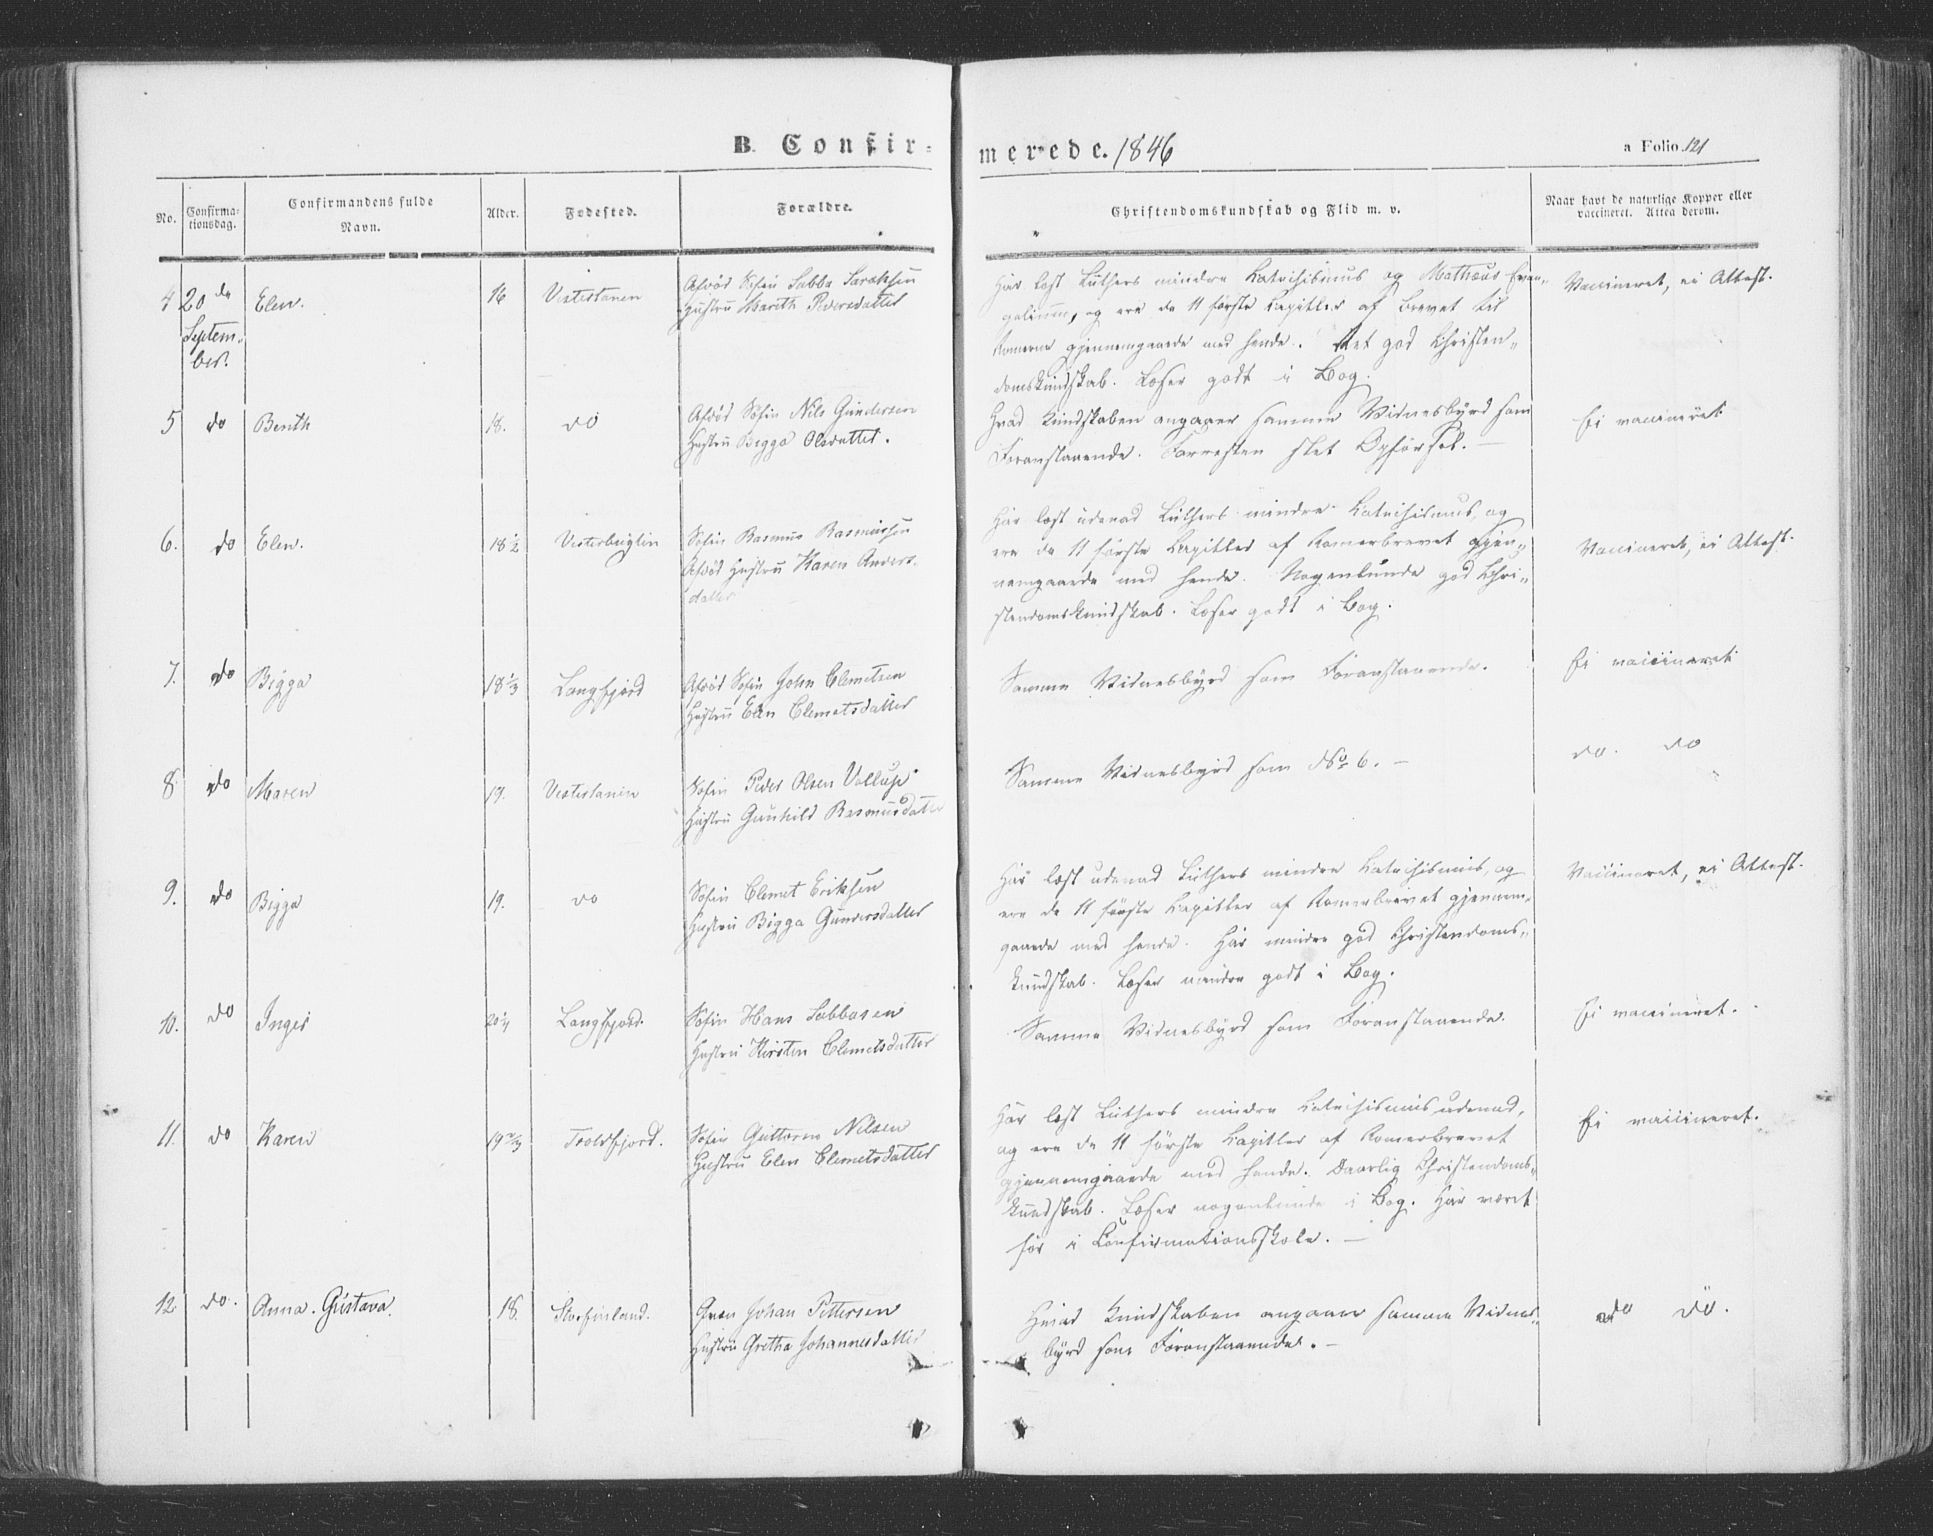 B. Confir-
merede. 1846
a Folio 121
No.
Confirma-
tionsdag.
Confirmandens fulde
Navn.
Alder.
Fødested.
Forældre.
Christendomskundskab og Flid m. v.
Naar havt de naturlige Kopper eller
vaccineret. Attest derom.
4 20de
Septem-
ber.
Elen.
16
Vestertanen
Afdød Søfin Sabba Sarahsen
Hustru Marith Pedersdatter
Har læst Luthers mindre Katechismus og Mathæus Evan-
gelium, og ere de 11 første Kapitler af Brevet til
Romerne gjennemgaaede med hende. Ret god Christen-
domskundskab. Læser godt i Bog.
Vaccineret, ei Attest.
5 do Berith 18. do
Afdød Søfin Nils Gundersen
Hustru Bigga Olsdatter.
Hvad Kundskaben angaaer samme Vidnesbyrd som
Foranstaaende. Forresten slet Opførsel. —
Ei vaccineret
6. do Elen. 18 1/2
Søfin Rasmus Rasmussen
Afdød Hustru Karen Anders-
datter
Har læst udenad Luthers mindre Katechismus, og
ere de 11 første Kapitler af Romerbrevet gjen-
nemgaaede med hende. Nogenlunde god Chri-
stendomskundskab. Læser godt i Bog.
Vaccineret, ei Attest.
7. do Bigga 18 1/3 Langfjord
Afdød Søfin John Clemetsen
Hustru Elen Clemetsdatter
Samme Vidnesbyrd som Foranstaaende.
Ei vaccineret
8. do Maren 17. Vestertanen
Søfin Peder Olsen
Hustru Gunhild Rasmusdatter
Samme Vidnesbyrd som No 6. —
do. do
9. do Bigga 19. do
Søfin Clemet Eriksen
Hustru Bigga Gundersdatter
Har læst udenad Luthers mindre Katechismus, og
ere de 11 første Kapitler af Romerbrevet gjennem-
gaaede med hende. Har mindre god Christendoms-
kundskab. Læser mindre godt i Bog.
Vaccineret, ei Attest.
10. do Inger Langfjord.
Søfin Hans Sabbasen
Hustru Kirsten Clemetsdatter
Samme Vidnesbyrd som Foranstaaende.
Ei vaccineret.
11. do Karen 19 2/3 Troldfjord.
Søfin Guttorm Nilsen
Hustru Elen Clemetsdatter
Har læst Luthers mindre Katechismus udenad,
og ere de 11 første Kapitler af Romerbrevet
gjennemgaaede med hende. Daarlig Christendoms-
kundskab. Læser nogenlunde i Bog. Har været
før i Confirmationsskole. —
Ei vaccineret.
12. do. Anna Gustava. 18. Storfinland.
Qvæn Johan Pettersen
Hustru Gretha Johannesdatter
Hvad Kundskaben angaaer samme Vidnes-
byrd som Foranstaaende. —
do do.